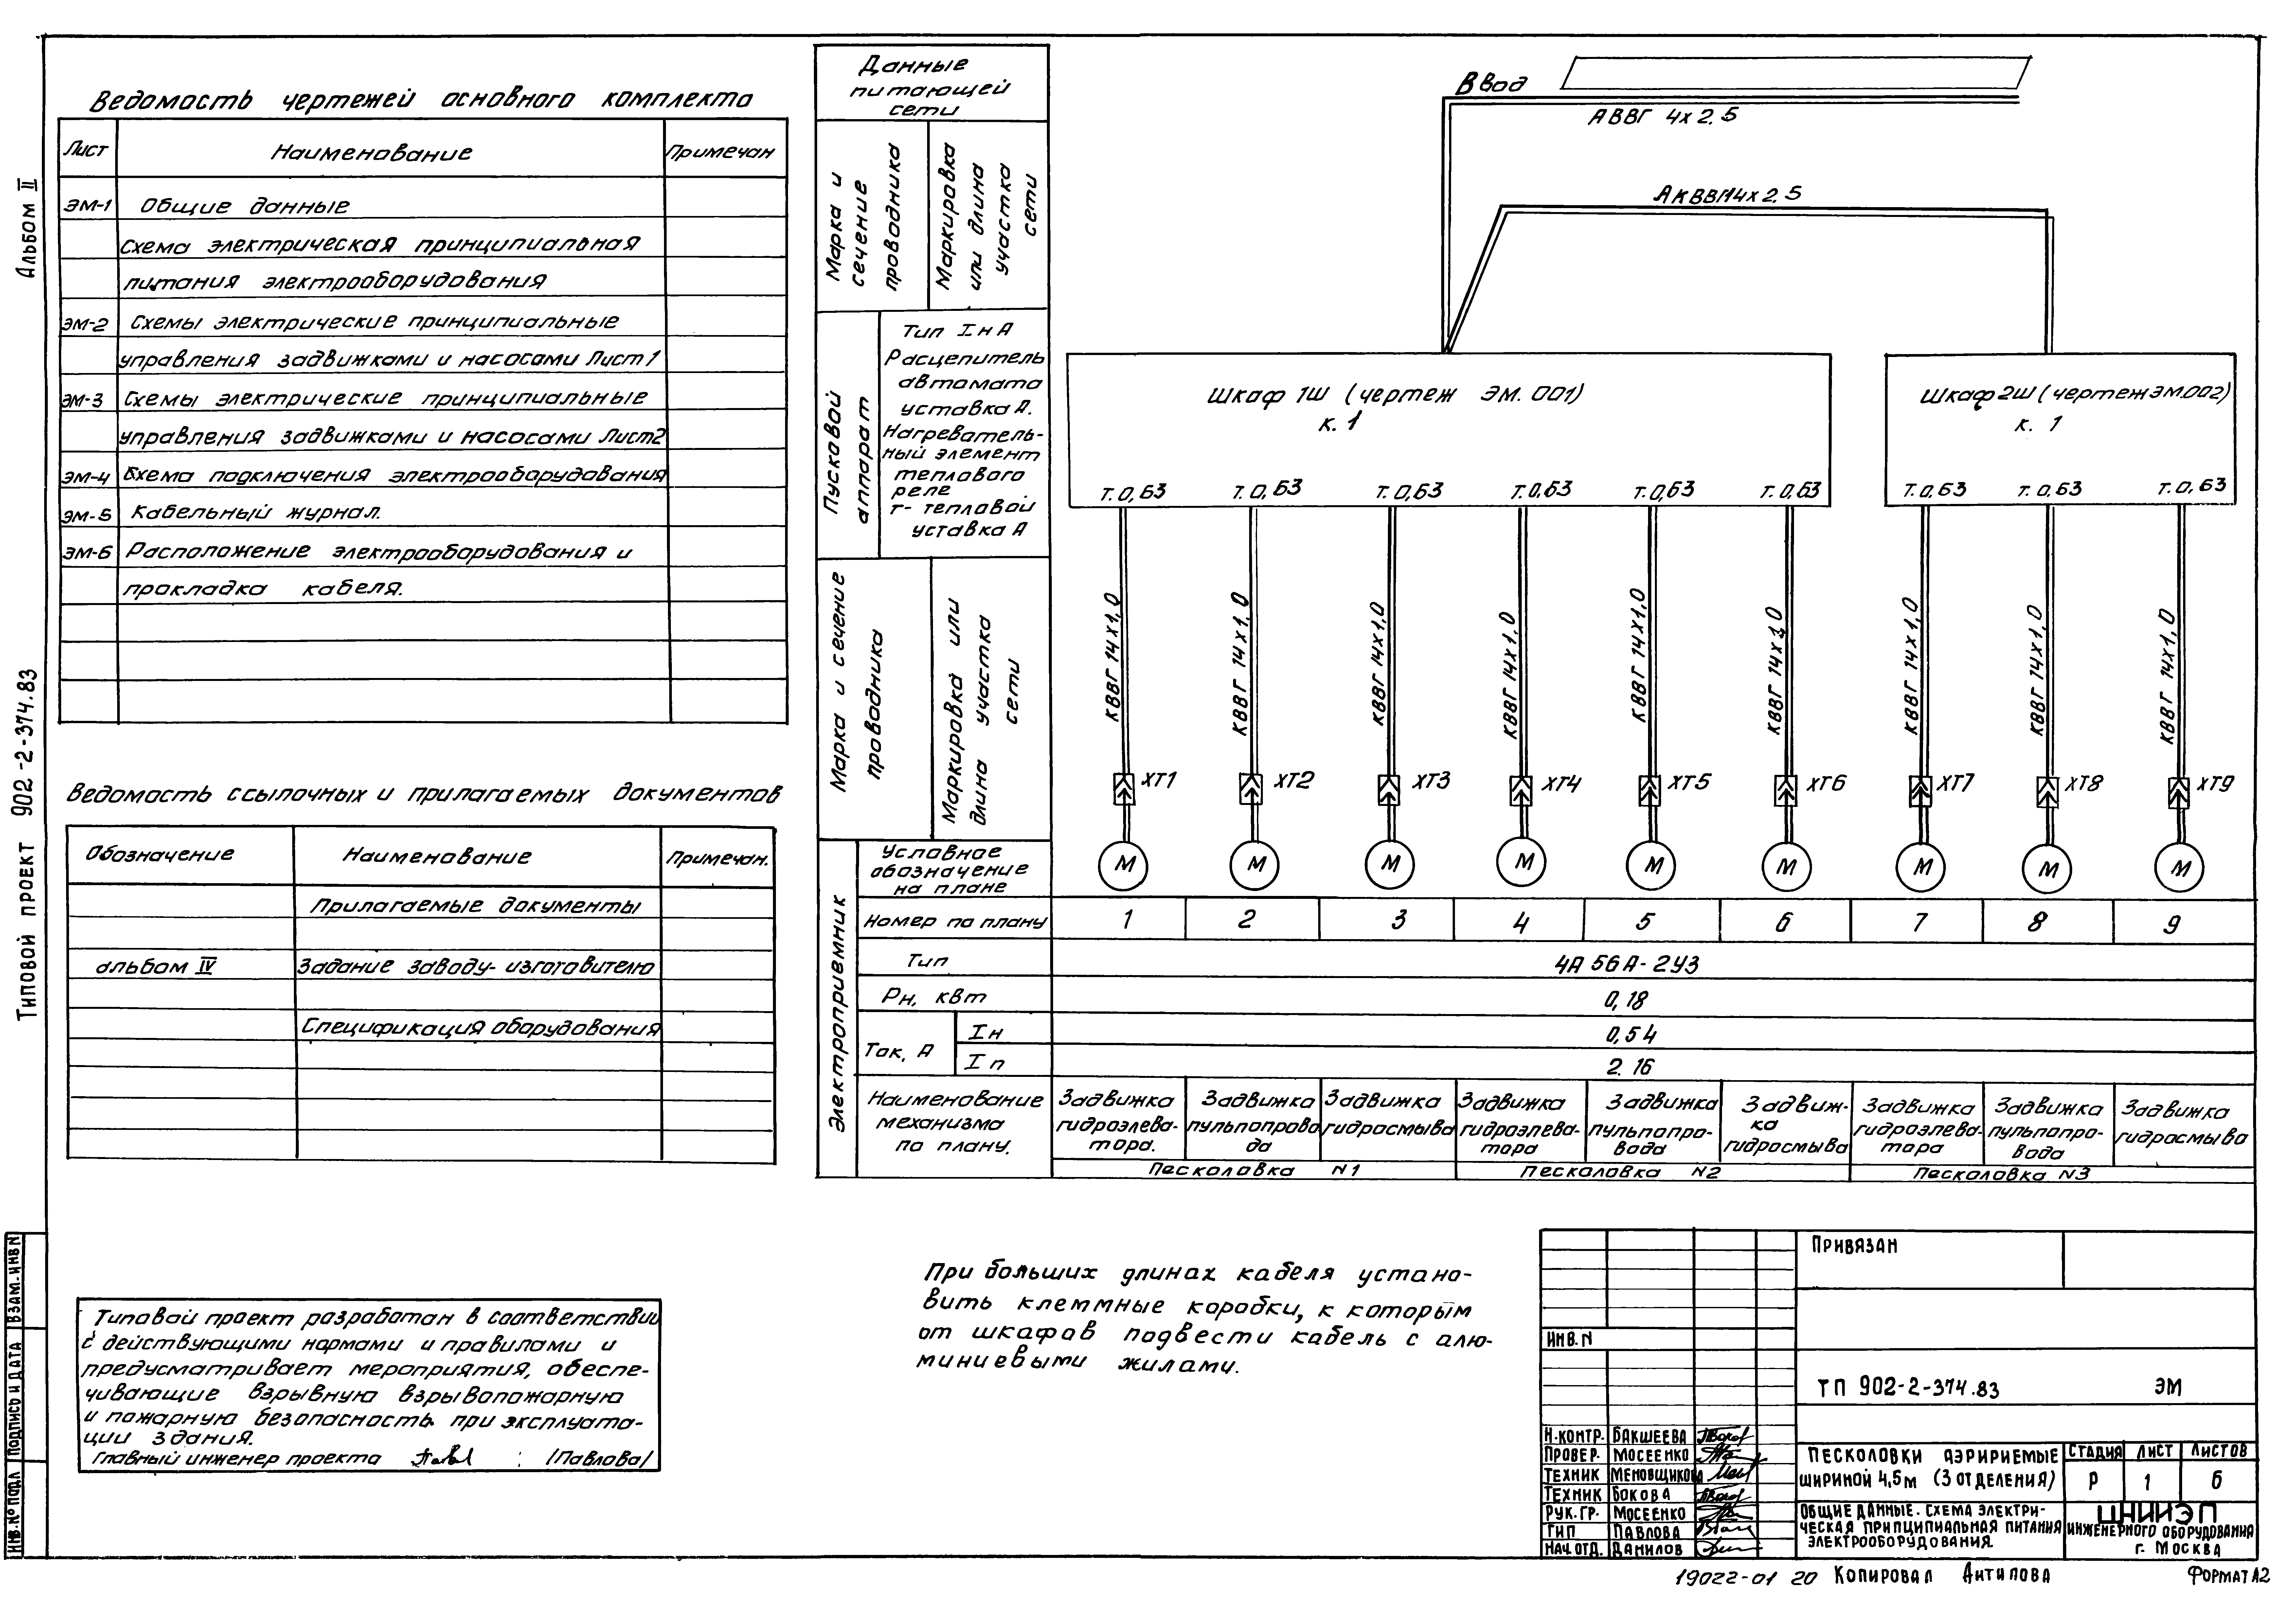 Альбом II
Типовой проект 902-2-374.83
Взам. инв N
Подпись и дата
Инв. № подл
Ведомость чертежей основного комплекта
Лист Наименование Примечан
ЭМ-1 Общие данные
Схема электрическая принципиальная
питания электрооборудования
ЭМ-2 Схемы электрические принципиальные
управления задвижками и насосами Лист 1
ЭМ-3 Схемы электрические принципиальные
управления задвижками и насосами Лист 2
ЭМ-4 Схема подключения электрооборудования
ЭМ-5 Кабельный журнал.
ЭМ-6 Расположение электрооборудования и
прокладка кабеля.
Ведомость ссылочных и прилагаемых документов
Обозначение Наименование Примечан.
Прилагаемые документы
альбом IV Задание заводу-изготовителю
Спецификация оборудования
Типовой проект разработан в соответствии
с действующими нормами и правилами и
предусматривает мероприятия, обеспе-
чивающие взрывную взрывопожарную
и пожарную безопасность при эксплуата-
ции здания.
Главный инженер проекта /Павлова/
Данные
питающей
сети
Марка и
сечение
проводника
Маркировка
или длина
участка
сети
Пусковой
аппарат
Тип Iн А
Расцепитель
автомата
уставка А.
Нагреватель-
ный элемент
теплового
реле
т- тепловой
уставка А
Марка и сечение
проводника
Маркировка или
длина участка
сети
Электроприемник
Условное
обозначение
на плане
Номер по плану 1 2 3 4 5 6 7 8 9
Тип 4А 56А-2У3
Рн, квт 0,18
Ток, А
Iн 0,54
Iп 2.16
Наименование
механизма
по плану.
Задвижка
гидроэлева-
тора.
Задвижка
пульпопрово
да
Задвижка
гидросмыва
Задвижка
гидроэлева-
тора
Задвижка
пульпопро-
вода
Задвиж-
ка
гидросмыва
Задвижка
гидроэлева-
тора
Задвижка
пульпопро-
вода
Задвижка
гидросмыва
Песколовка N1 Песколовка N2 Песколовка N3
Ввод
АВВГ 4х2.5
АКВВГ14х2.5
Шкаф 1Ш (чертеж ЭМ.001)
к.1
Т.0,63 Т.0,63 Т.0,63 Т.0,63 Т.0,63 Т.0,63
Шкаф 2Ш (чертеж ЭМ.002)
к. 1
Т.0,63 Т.0,63 Т.0,63
КВВГ 14х1,0 КВВГ 14х1,0 КВВГ 14х1,0 КВВГ 14х1,0 КВВГ 14х1,0 КВВГ 14х1,0 КВВГ 14х1,0 КВВГ 14х1,0 КВВГ 14х1,0
ХТ1 ХТ2 ХТ3 ХТ4 ХТ5 ХТ6 ХТ7 ХТ8 ХТ9
М М М М М М М М М
При больших длинах кабеля устано-
вить клеммные коробки, к которым
от шкафов подвести кабель с алю-
миниевыми жилами.
Привязан
Инв. N
ТП 902-2-374.83 ЭМ
Н.контр. Бакшеева
Провер. Мосеенко
Техник Меновщикова
Техник Бокова
Рук. гр. Мосеенко
ГИП Павлова
Нач. отд. Данилов
Песколовки аэрируемые
шириной 4,5м (3 отделения)
Стадия Лист Листов
Р 1 6
Общие данные. Схема электри-
ческая принципиальная питания
электрооборудования.
ЦНИИЭП
инженерного оборудования
г. Москва
19022-01 20 Копировал Антипова Формат А2